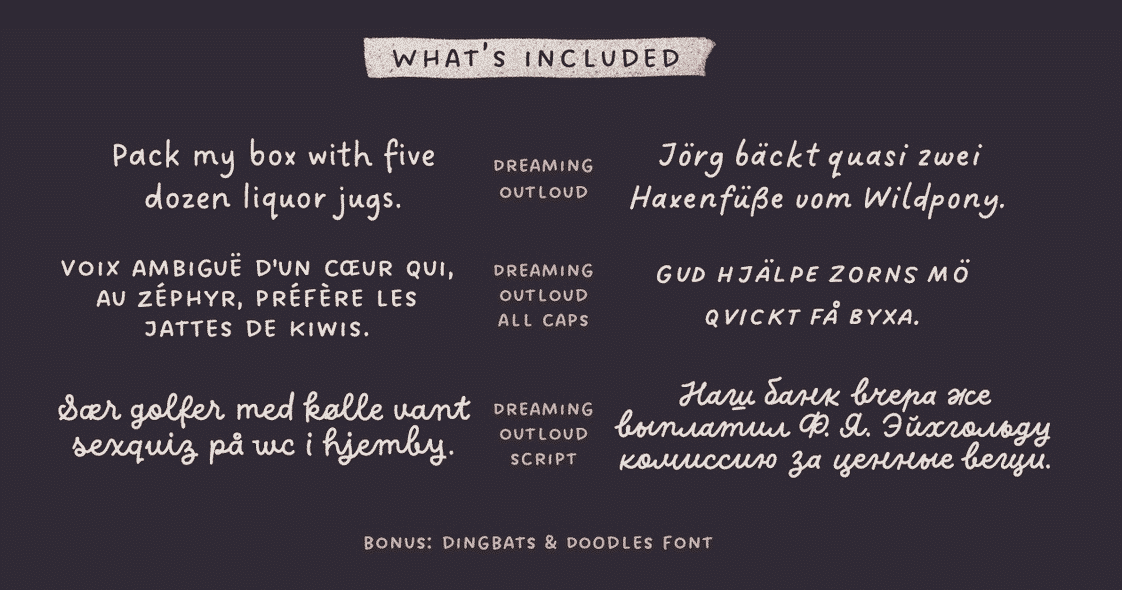 WHAT'S INCLUDED
Pack my box with five
dozen liquor jugs.
DREAMING
OUTLOUD
Jörg bäckt quasi zwei
Haxenfüße vom Wildpony.
VOIX AMBIGUË D'UN CŒUR QUI,
AU ZÉPHYR, PRÉFÈRE LES
JATTES DE KIWIS.
DREAMING
OUTLOUD
ALL CAPS
GUD HJÄLPE ZORNS MÖ
QVICKT FÅ BYXA.
Sær golfer med kølle vant
sexquiz på wc i hjemby.
DREAMING
OUTLOUD
SCRIPT
Наш банк вчера же
выплатил Ф. Я. Эйхгольду
комиссию за ценные вещи.
BONUS: DINGBATS & DOODLES FONT